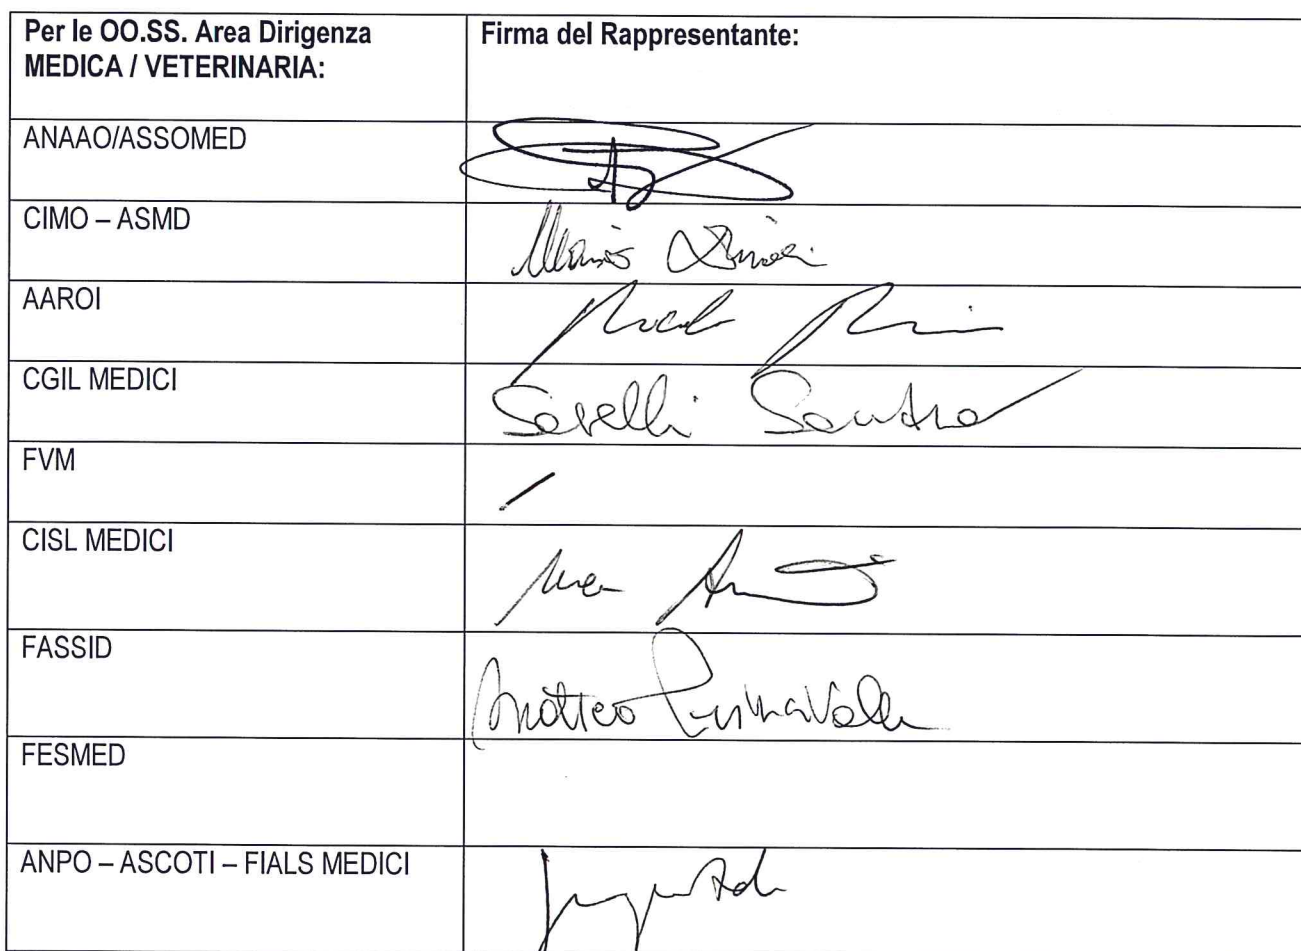 Per le OO.SS. Area Dirigenza
MEDICA / VETERINARIA:
Firma del Rappresentante:
ANAAO/ASSOMED
CIMO – ASMD
AAROI
CGIL MEDICI
Sandro
FVM
CISL MEDICI
FASSID
Matteo
FESMED
ANPO – ASCOTI – FIALS MEDICI